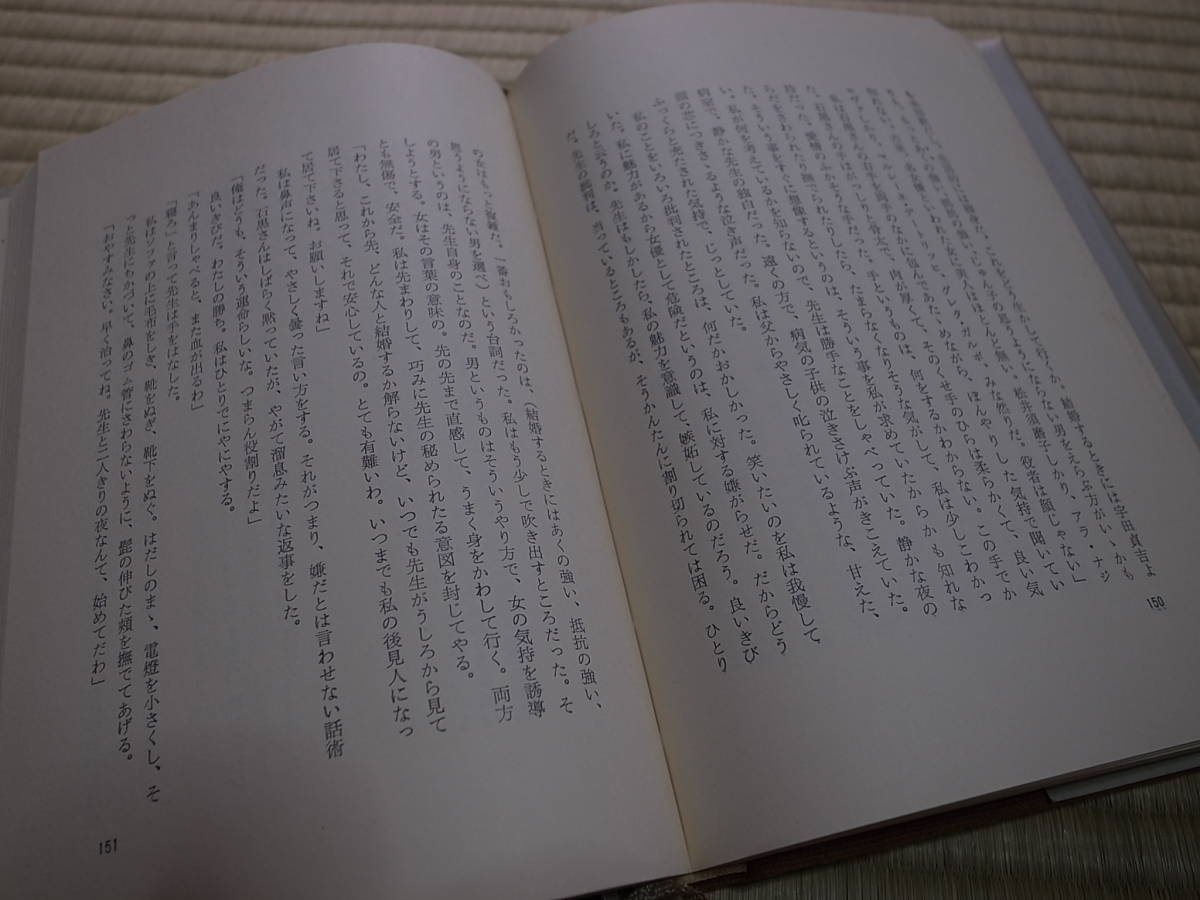 結婚するときには宇田貞吉よ
思うようにならない男をえらぶ方がいゝかも
松井須磨子しかり、アラ・ナジ
モヴァしかり、マルレーネ・デートリッヒ、グレタ・ガルボ、みな然りだ。役者は顔じゃない」
私は石黒さんの手を両手のなかに包んであた、めながら、ぼんやりした気持で聞いてい
た。石黒さんの手はがっしりと骨太で、肉が厚くて、そのくせ手のひらは柔らかくて、良い気
持だった。愛情のふかそうな手だった。手というものは、何をするかわからない。この手でか
らだをさわられたり撫でられたりしたら、たまらなくなりそうな気がして、私は少しこわかっ
た。そういう事をすぐに想像するというのは、そういう事を私が求めていたからかも知れな
い。私が何を考えているかを知らないので、先生は勝手なことをしゃべっていた。静かな夜の
病室で、静かな先生の独白だった。遠くの方で、病気の子供の泣きさけぶ声がきこえていた。
闇の芯につきささるような泣き声だった。私は父からやさしく叱られているような、甘えた、
ふっくらと充たされた気持で、じっとしていた。
私のことをいろいろ批判されたところは、何だかおかしかった。笑いたいのを私は我慢して
いた。私に魅力があるから女優として危険だというのは、私に対する嫌がらせだ。だからどう
しろと云うのか。先生はもしかしたら、私の魅力を意識して、嫉妬しているのだろう。良いきび
だ。先生の批判は、当っているところもあるが、そうかんたんに割り切られては困る。ひとり
150
の女はもっと複雑だ。一番おもしろかったのは、(結婚するときにはあくの強い、抵抗の強い、
思うようにならない男を選べ)という台詞だった。私はもう少しで吹き出すところだった。そ
の男というのは、先生自身のことなのだ。男というものはそういうやり方で、女の気持を誘導
しようとする。女はその言葉の意味の。先の先まで直感して、うまく身をかわして行く。両方
とも無傷で、安全だ。私は先まわりして、巧みに先生の秘められたる意図を封じてやる。
「わたし、これから先、どんな人と結婚するか解らないけど、いつでも先生がうしろから見て
居て下さると思って、それで安心しているの。とても有難いわ。いつまでも私の後見人になっ
て居て下さいね。お願いしますね」
私は鼻声になって、やさしく曇った言い方をする。それがつまり、嫌だとは言わせない話術
だった。石黒さんはしばらく黙っていたが、やがて溜息みたいな返事をした。
「俺はどうも、そういう運命らしいな。つまらん役割りだよ」
良いきびだ。わたしの勝ち。私はひとりでにやにやする。
「あんまりしゃべると、また血が出るわ」
「寝ろ」と言って先生は手をはなした。
私はソファの上に毛布をしき、靴をぬぎ、靴下をぬぐ。はだしのまゝ、電燈を小さくし、そ
っと先生にちかづいて、鼻のゴム管にさわらないように、髭の伸びた頬を撫でてあげる。
「おやすみなさい。早く治ってね。先生と二人きりの夜なんて、始めてだわ」
151